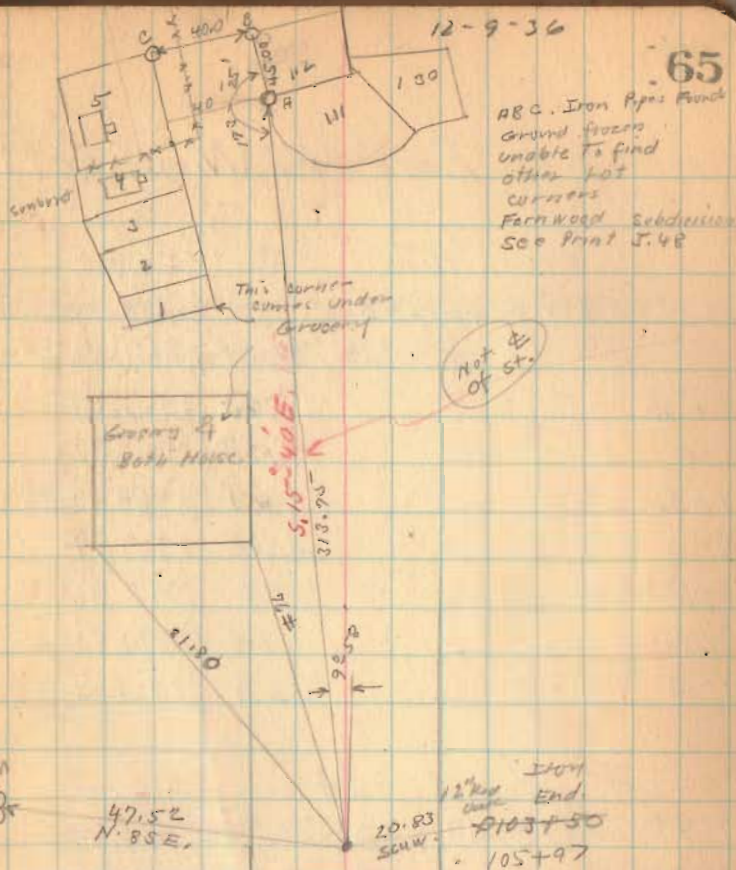 12-9-36
65
ABC. Iron Pipes Found
Ground frozen
unable To find
other Lot
corners
Fernwood Subdivision
See Print J.48
C
40.0
B
45.00
125
40
A
112
111
130
5
4
3
2
1
This corner
comes under
Grocery
Not ℄
of St.
Grocery &
Bath House.
S.15°-40'E.
313.75
81.80
76
47.52
N.85E.
20.83
12"
Iron
End
103+50
105+97